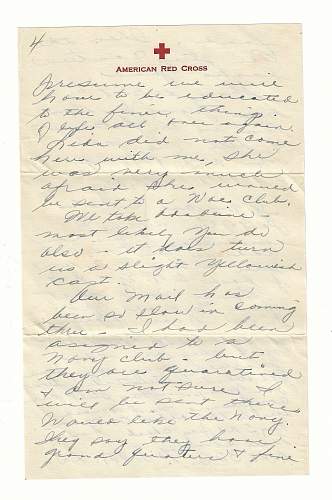 4
AMERICAN RED CROSS
presume we will
have to be educated
to the finer things
of life all over again.
did not come
here with me, she
was very much
afraid she would
be sent to a Club.
We take
most likely you do
also - it does turn
us a slight yellowish
cast.
Our mail has
been so slow in coming
thru - I had been
assigned to a
Navy Club - but
they are quarantined
& am not sure I
will be sent there
Would like the Navy.
They say they have
grand quarters & fine